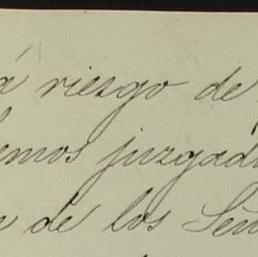 á riesgo de
emos juzgad
de los Señ